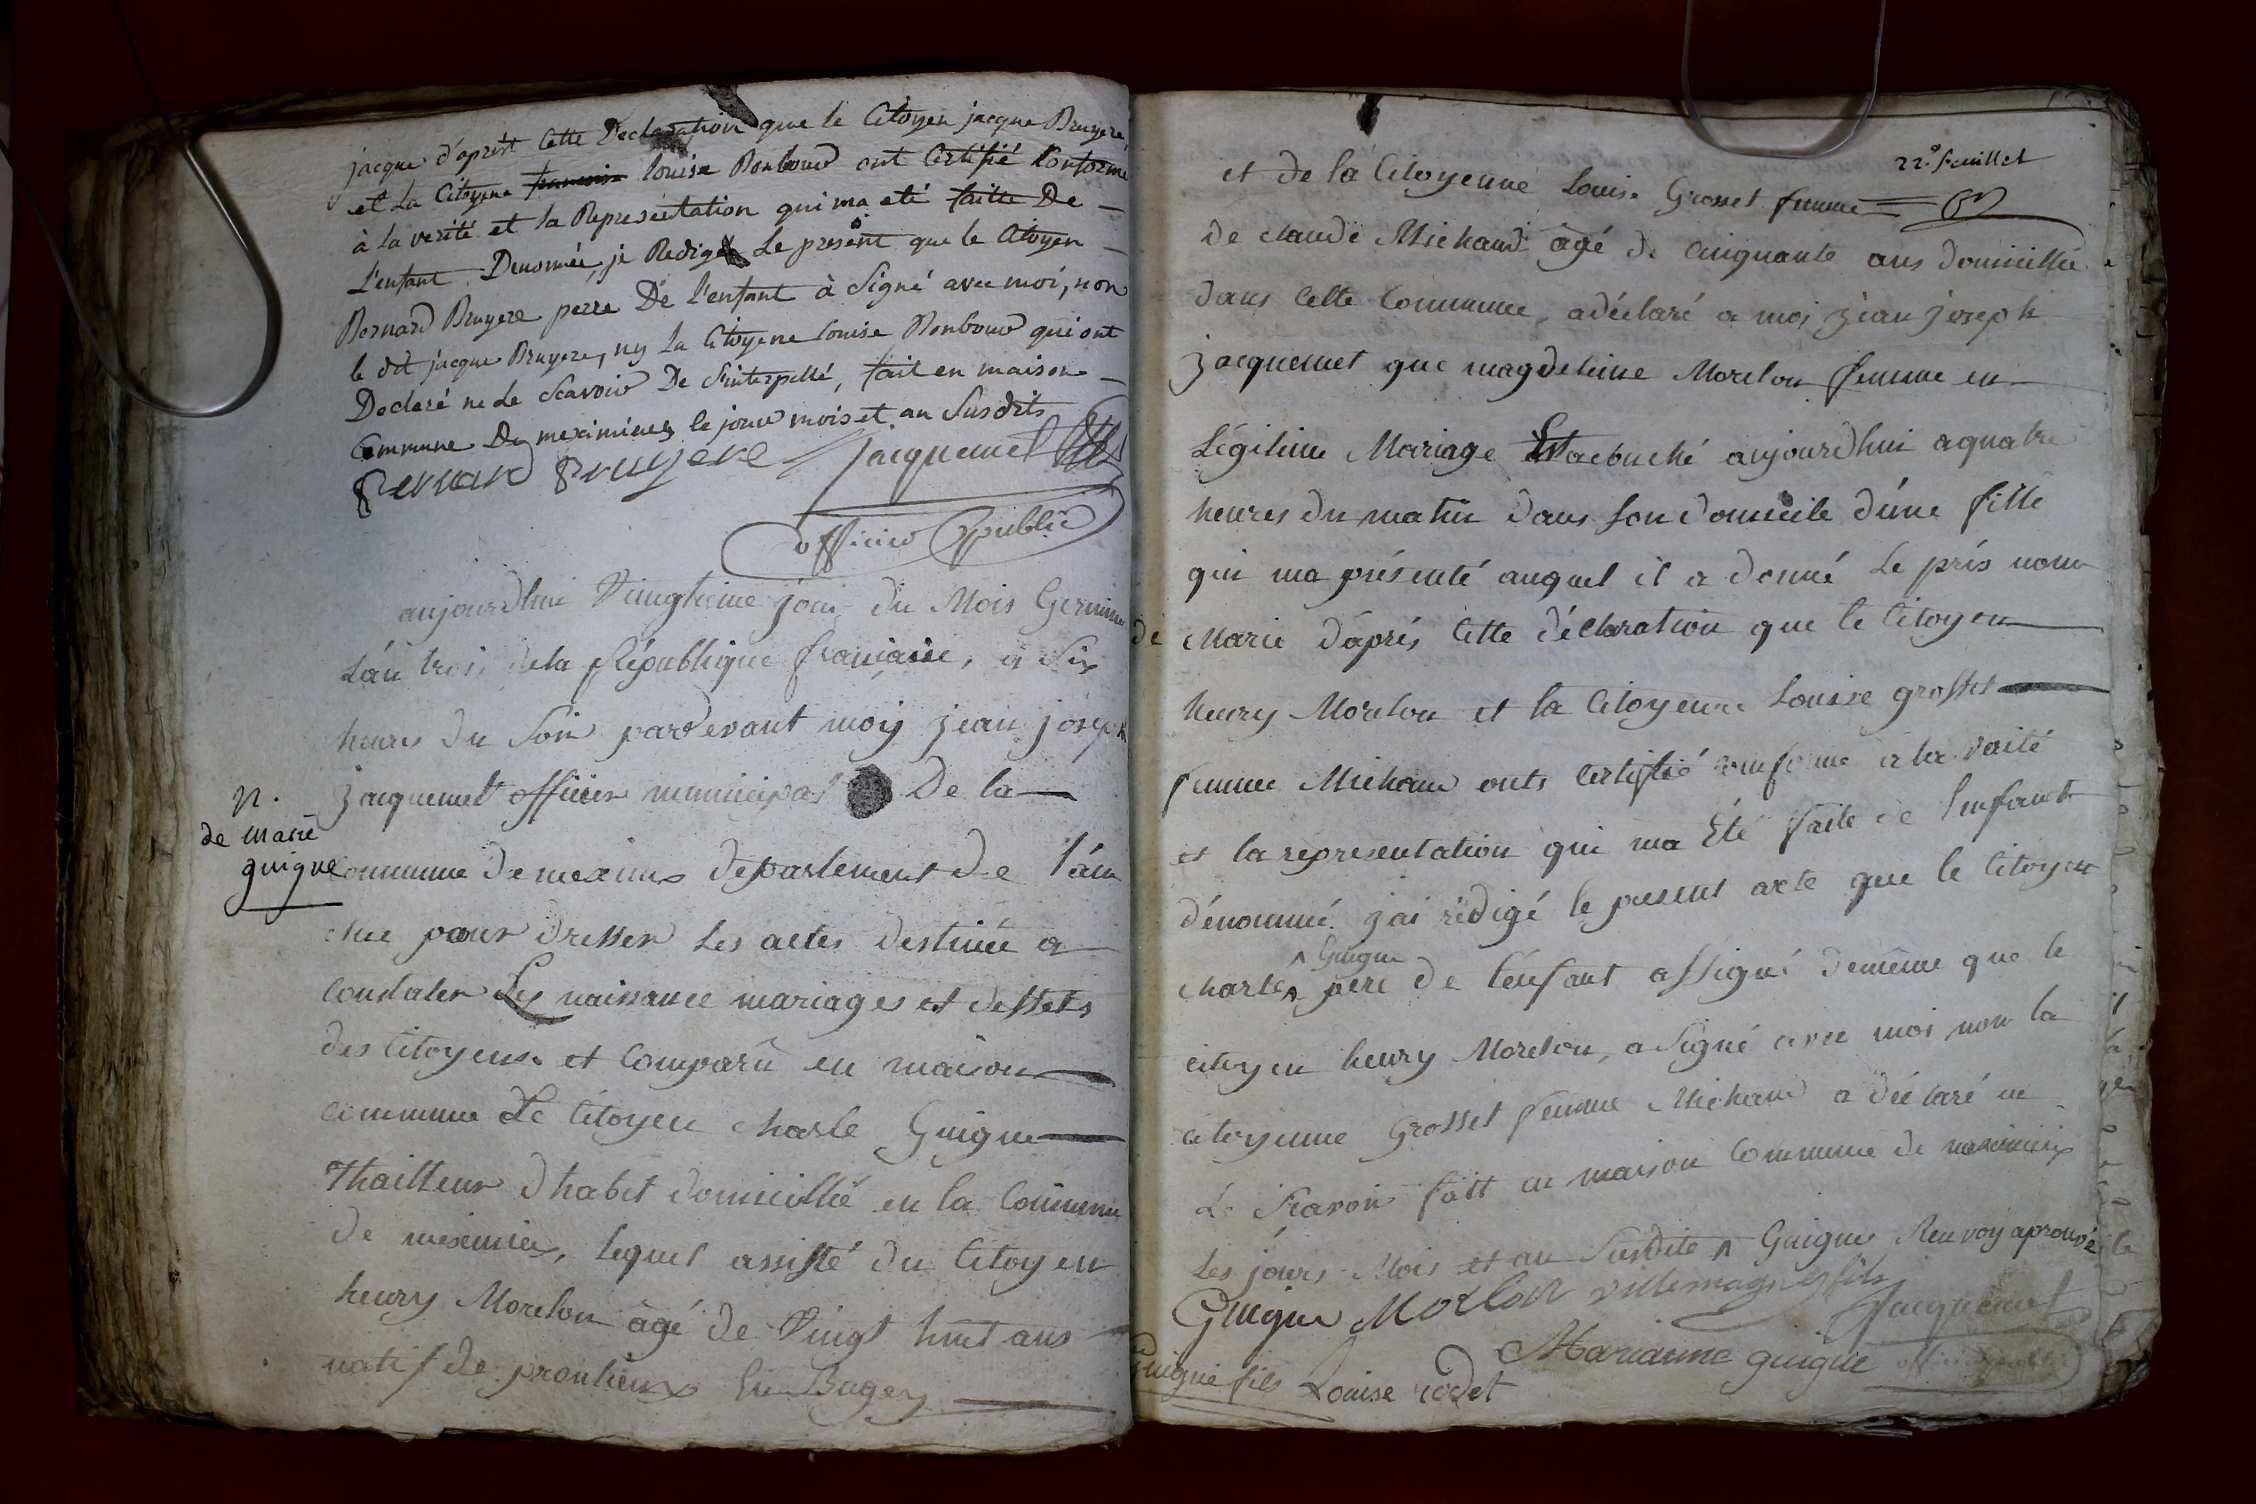 jacque d'aprest Cette Declaration que le Citoyen jacque Bruyere,
et La Citoyene francoise louise Bonboud ont Certifié Conforme
à la verité et la Represéntation qui ma eté faitte De —
L'enfant Denomée, je Redige Le present que le Citoyen —
Bernard Bruyere perre De l'enfant à Signé avec moi, non
le dit jacque Bruyere, ny La Citoyene louise Bonboud qui ont
Declaré ne Le Scavoir De Sinterpellé, fait en maison —
Commune De meximieux le jour mois et an Susdits
Bernard Bruyere jacquemet
officier public
aujourdhui Vingtieme jour du Mois Germinal
L'an trois de la République francaise, a Six
heures du Soir pardevant moy jean joseph
jacquemet officier municipal De la —
N.
de marie
guigue
commune de meximieux departement de l'ain
elue pour dresser Les actes destinée a
Constater Les naissance mariages et dessets
des Citoyens et Comparû en maison —
commune Le Citoyen charle Guigue —
Thailleur d'habit domicillié en la Commune
de meximieu, lequel assisté du Citoyen
henry Morelon agé de Vingt huit ans
natif de proulieux en Bugey —
22.e feuillet
et de la Citoyenne Louise Grosset femme
de claude Michaud agé de Cinquante ans domicillié
dans Cette Commune, a déclaré a moi jean joseph
jacquemet que magdeleine Morelon femme en
Légitime Mariage Est acouché aujourdhui a quatre
heures du matin dans Son domicile d'une fille
qui ma présenté auquel il a donné Le prés nom
de Marie d'aprés Cette déclaration que le Citoyen —
henry Morelon et la Citoyenne Louise grosset —
femme Michaud onts Certifié conforme a la vaité
et la représentation qui ma Eté faite de l'enfant
dénommé j'ai rédigé le present acte que le Citoyen
^ Guigue
charle ^ pere de l'enfant a Signé demême que le
citoyen henry Morelon, a Signé avec moi non la
citoyenne Grosset femme Michaud a déclaré ne
Le Scavoir fait en maison Commune de meximieux
Les jours Mois et an Susdite ^ Guigue Renvoy aprouvé
Guigue Morlon villemagne fils jacquemet
Marianne guigue officier public
Guigue fils Louise rodet